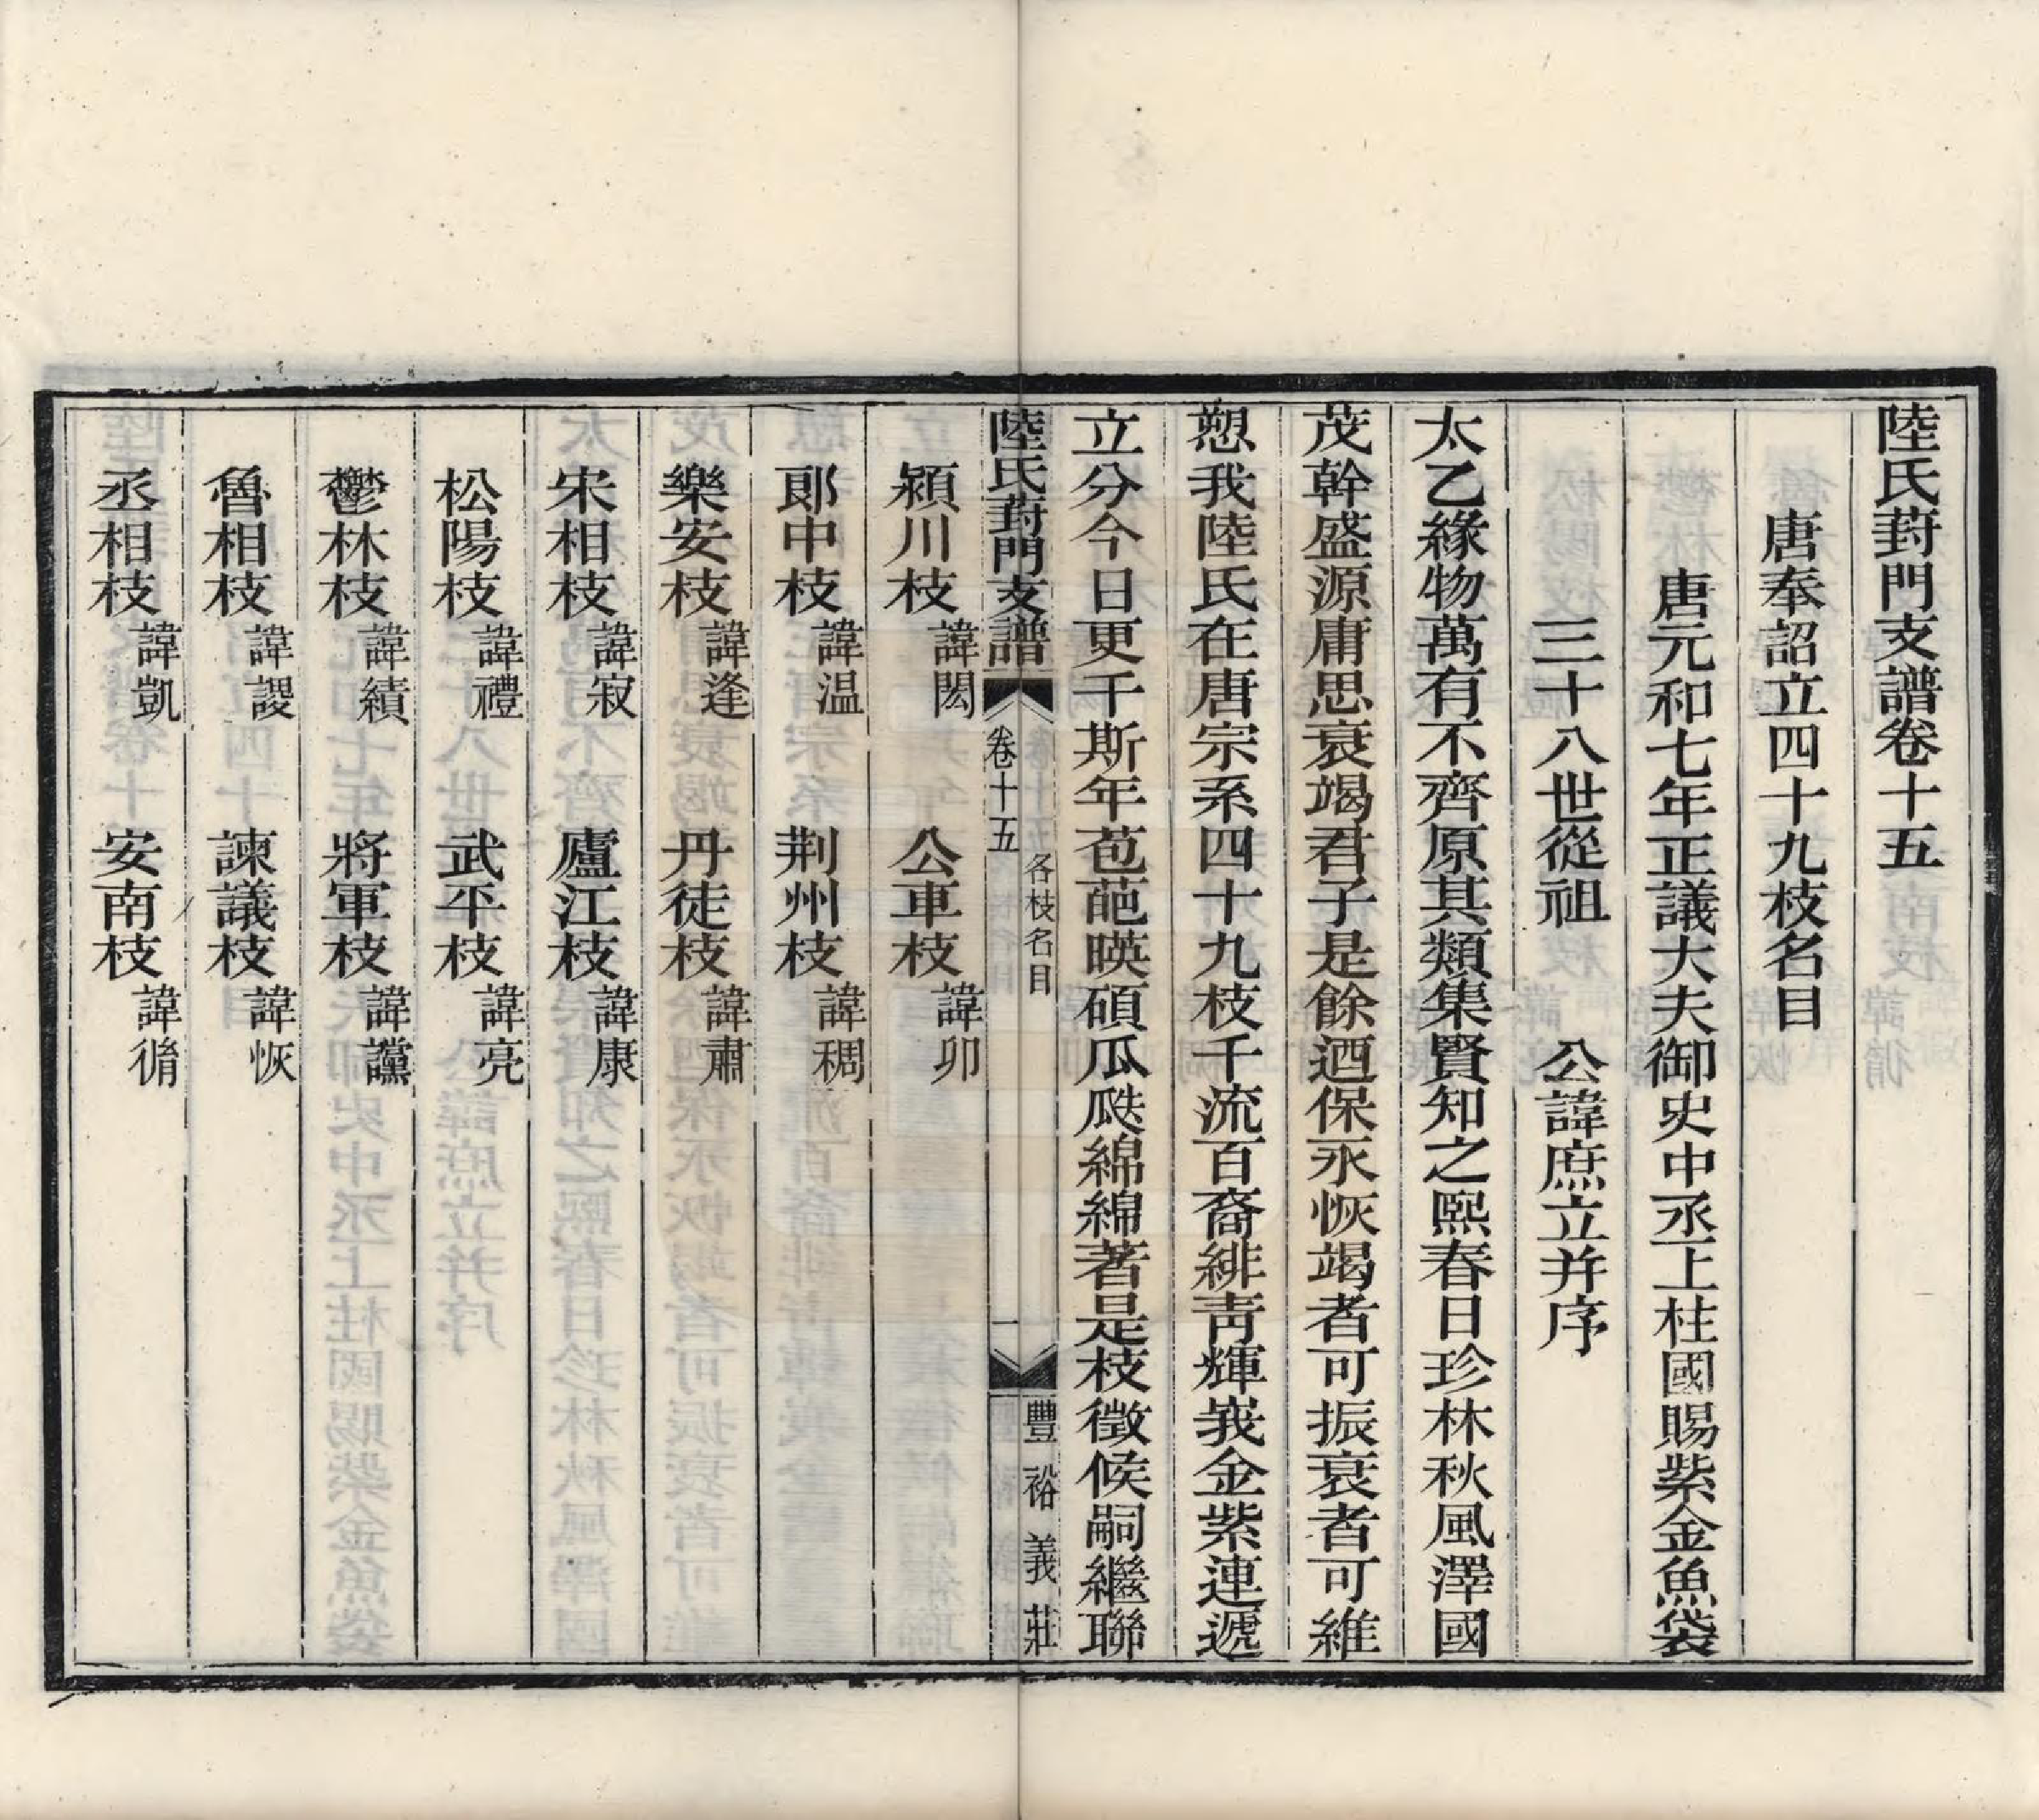 陸氏葑門支譜卷十五
唐奉詔立四十九枝名目
唐元和七年正議大夫御史中丞上柱國賜紫金魚袋
三十八世從祖 公諱庶立并序
太乙緣物萬有不齊原其類集賢知之熙春日珍林秋風澤國
茂幹盛源庸思衰竭君子是餘迺保永恢竭者可振衰者可維
愬我陸氏在唐宗系四十九枝千流百裔緋靑輝峩金紫連遞
立分今日更千斯年苞葩暎碩瓜瓞綿綿著是枝徵候嗣繼聯
陸氏葑門支譜 卷十五 各枝名目 一 豐裕義莊
潁川枝 諱閎 公車枝 諱卯
郞中枝 諱温 荆州枝 諱稠
樂安枝 諱逢 丹徒枝 諱肅
宋相枝 諱寂 廬江枝 諱康
松陽枝 諱禮 武平枝 諱亮
鬱林枝 諱績 將軍枝 諱讜
魯相枝 諱謖 諫議枝 諱恢
丞相枝 諱凱 安南枝 諱脩